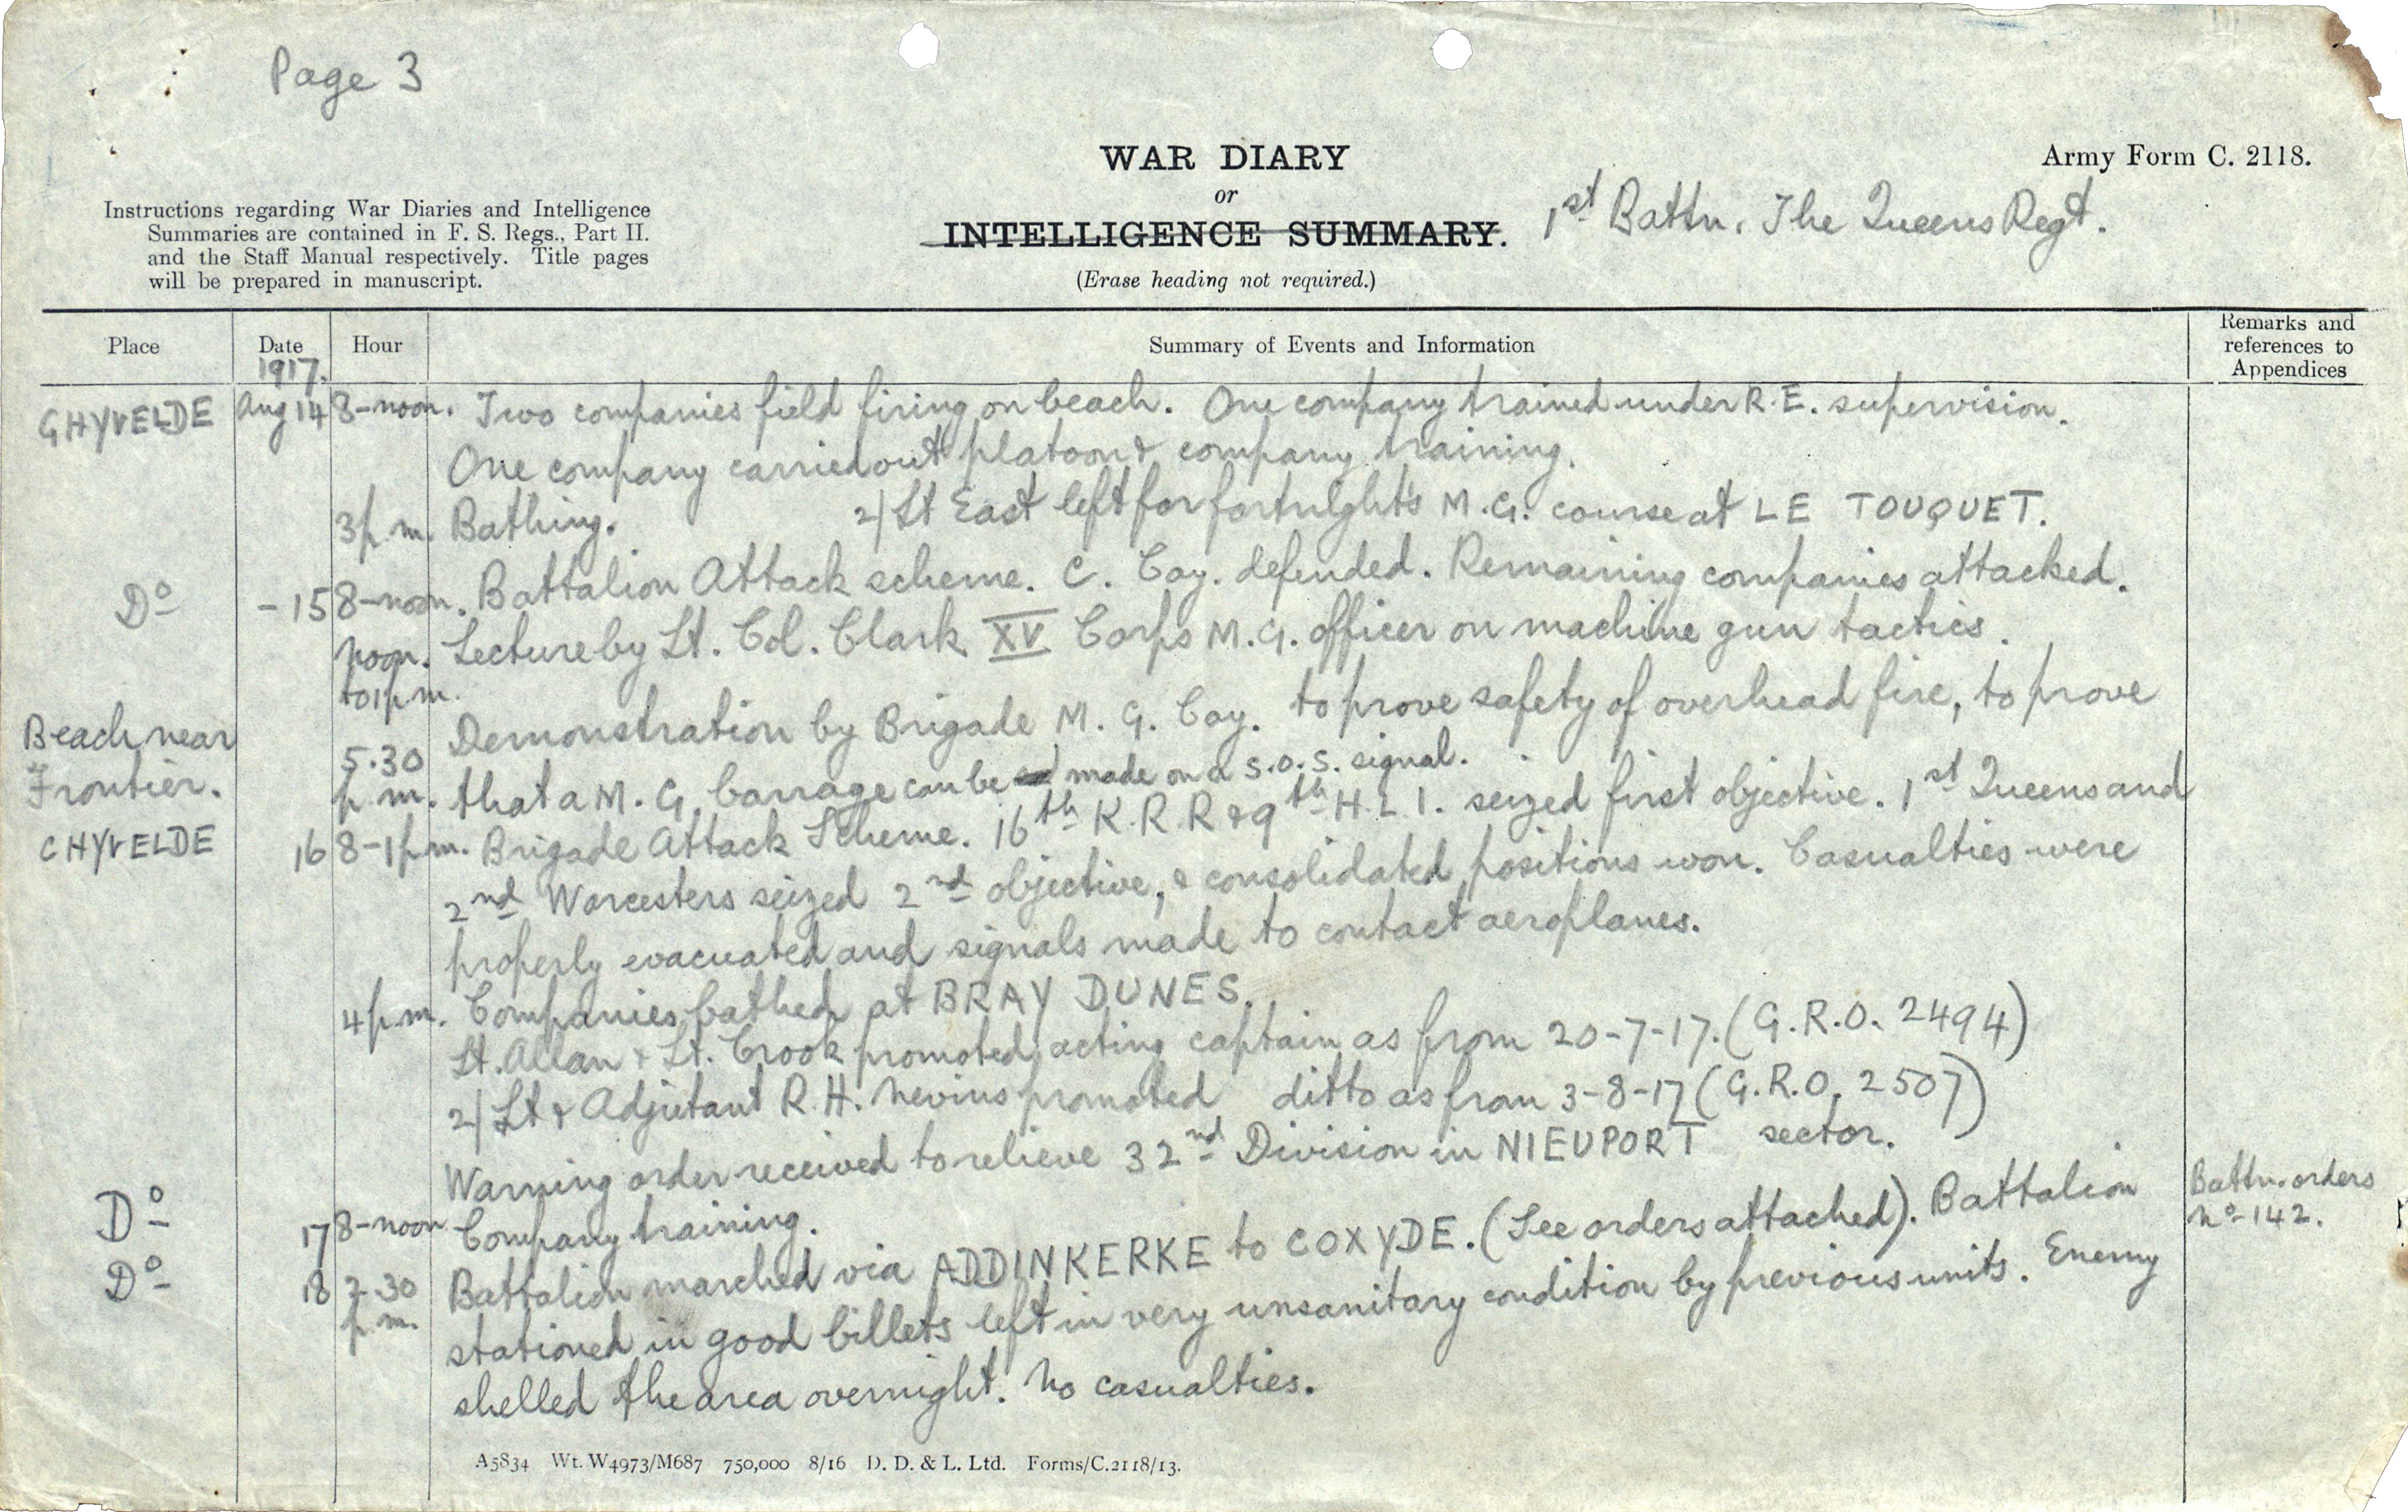 Page 3
WAR DIARY
or
INTELLIGENCE SUMMARY.
(Erase heading not required.)
Army Form C. 2118.
1st Battn. The Queens Regt.
Instructions regarding War Diaries and Intelligence
Summaries are contained in F. S. Regs., Part II.
and the Staff Manual respectively. Title pages
will be prepared in manuscript.
Place Date Hour Summary of Events and Information Remarks and references to Appendices
1917.
GHYVELDE Aug 14 8-noon. Two companies field firing on beach. One company trained under R.E. supervision.
One company carried out platoon & company training.
3 p.m. Bathing. 2/Lt East left for fortnight's M.G. course at LE TOUQUET.
Do - 15 8-noon. Battalion Attack scheme. C. Coy. defended. Remaining companies attacked.
noon. to 1 p.m. Lecture by Lt. Col. Clark XV Corps M.G. officer on machine gun tactics.
Beach near Frontier. 5.30 p.m. Demonstration by Brigade M. G. Coy. to prove safety of overhead fire, to prove
that a M. G. barrage can be made on a S.O.S. signal.
GHYVELDE 16 8-1 p.m. Brigade Attack Scheme. 16th K.R.R & 9th H.L.I. seized first objective. 1st Queens and
2nd Worcesters seized 2nd objective, & consolidated positions won. Casualties were
properly evacuated and signals made to contact aeroplanes.
4 p.m. Companies bathed at BRAY DUNES.
Lt. Allan & Lt. Crook promoted acting captain as from 20-7-17. (G.R.O. 2494)
2/Lt & Adjutant R.H. Nevins promoted ditto as from 3-8-17 (G.R.O. 2507)
Warning order received to relieve 32nd Division in NIEUPORT sector.
Do 17 8-noon Company training.
Do 18 2.30 p.m. Battalion marched via ADDINKERKE to COXYDE. (See orders attached). Battalion Battn. orders No 142.
stationed in good billets left in very unsanitary condition by previous units. Enemy
shelled the area overnight. No casualties.
A5834 Wt. W4973/M687 750,000 8/16 D. D. & L. Ltd. Forms/C.2118/13.